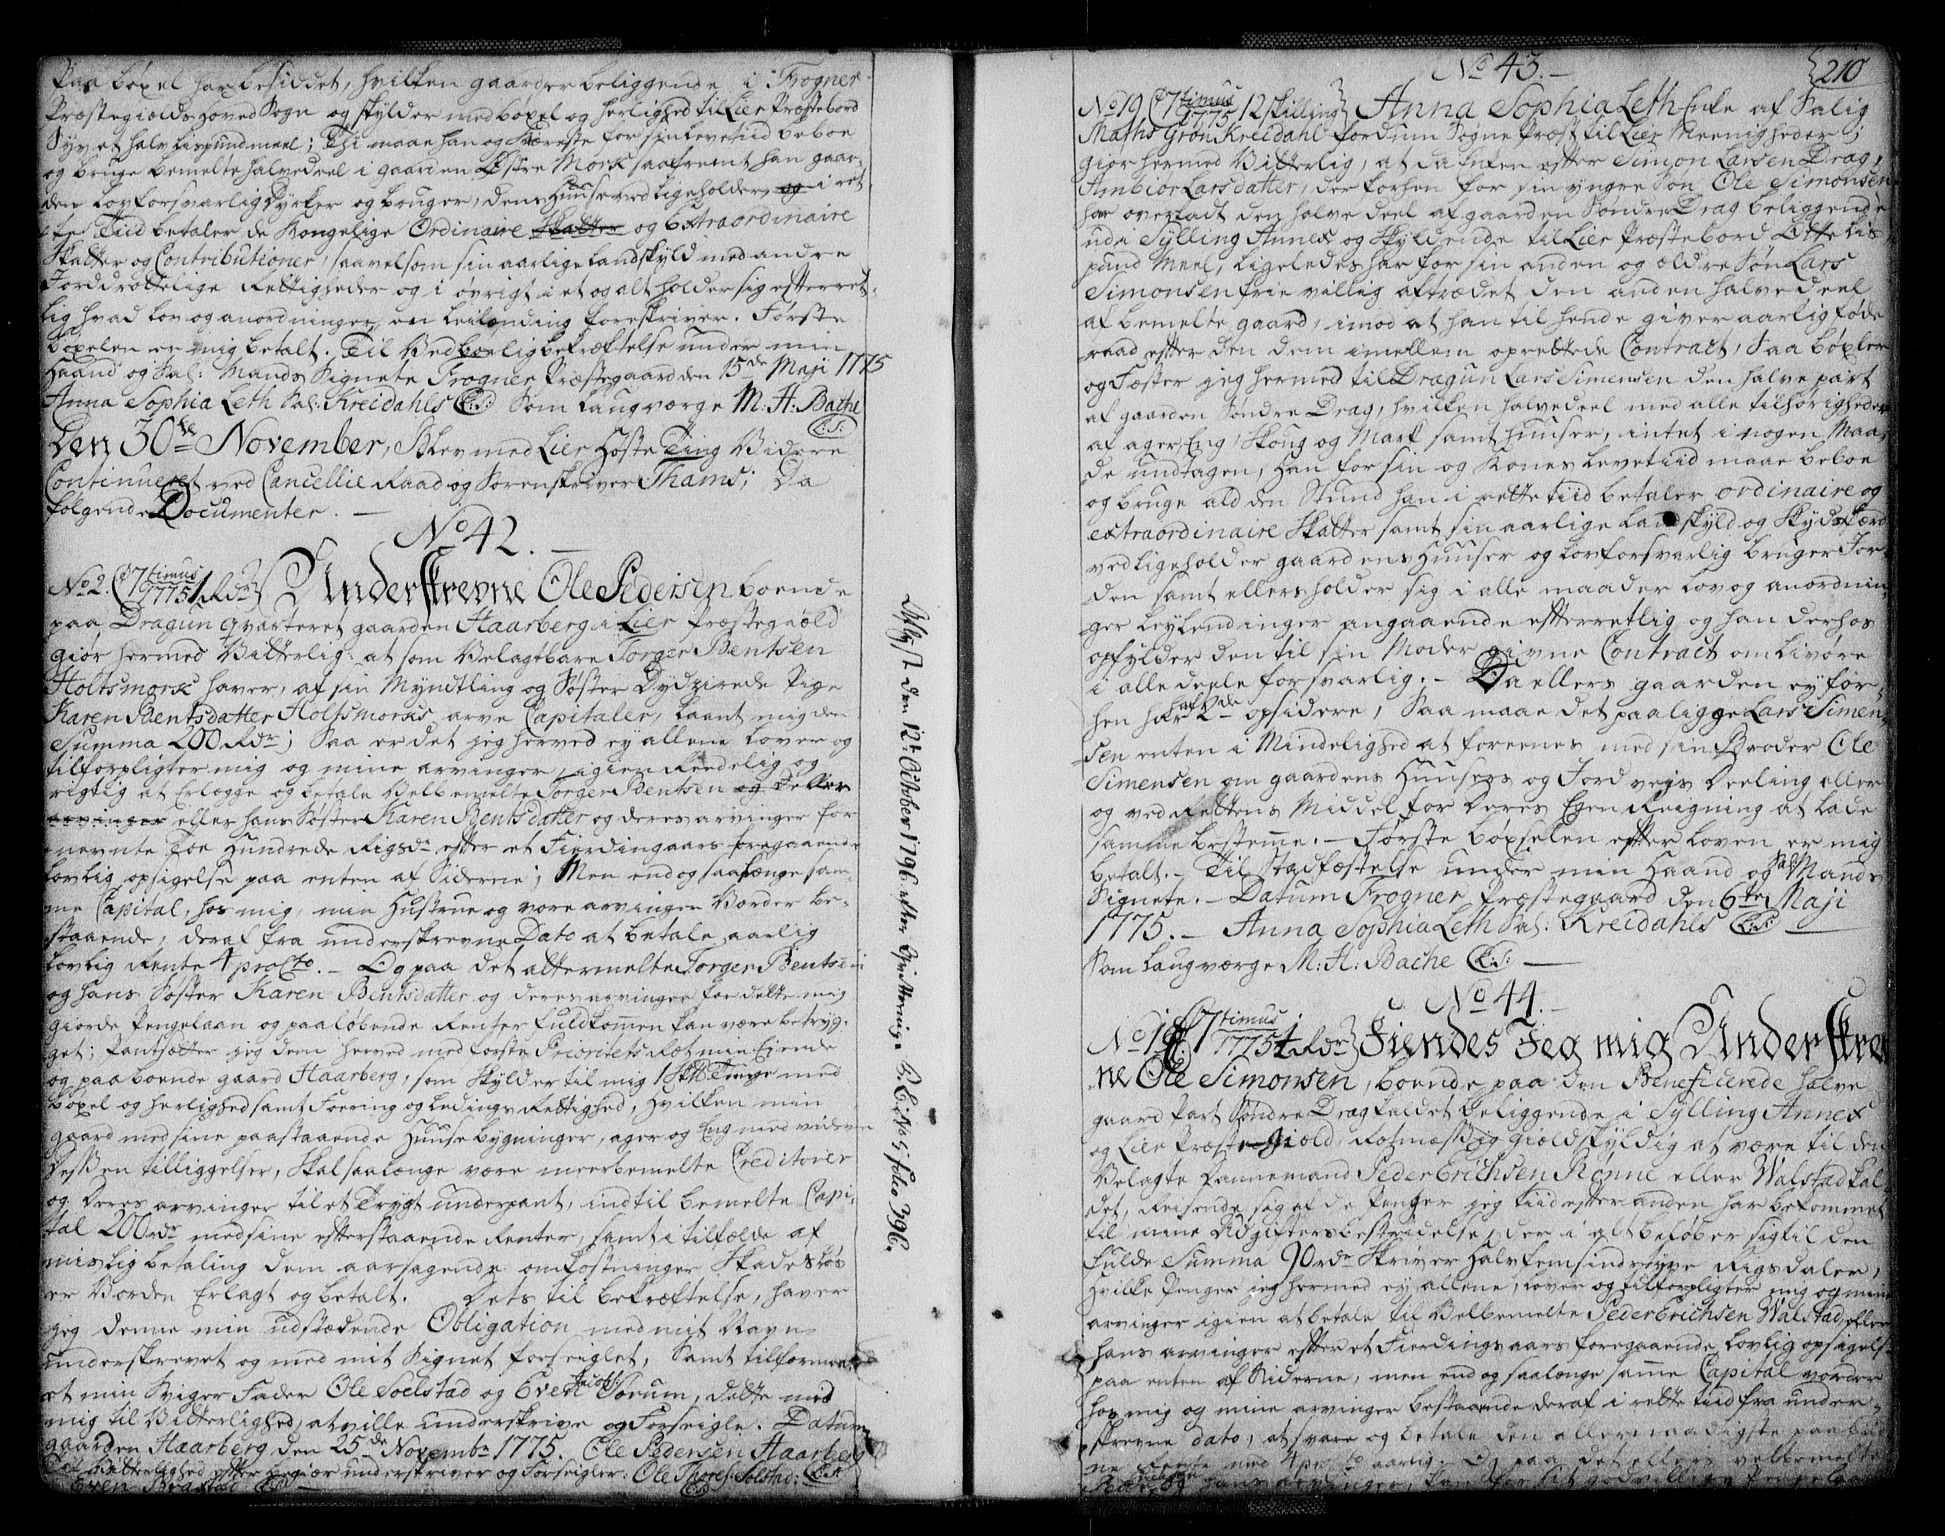 Paa böxel har besiddet, hvilken gaard er beliggende i Frogner
Præstegiælds Hoved Sogn og skylder med böxel og herlighed til Lier Præstebord
Syvet halv Lispund meel; Thi maae han og Kiæreste for sin Levetiid beboe
og bruge bemelte halvedeel i gaarden Östre Mork saafremt han gaar-
den Lovforsvarlig Dyrker og bruger, dens Huuse vedligeholder og i ret-
te Tiid betaler de Kongelige Ordinaire Skatter og Extraordinaire
Skatter og Contributioner, saavelsom sin aarlige Landskyld med andre
Jorddrottelige Rettigheder og i övrigt i et og alt holder sig efterret-
lig hvad Lov og anordninger en Leilending foreskriver. Förste
böxelen er mig betalt. Til Vedbörlig bekræftelse under min
Haand og Sal: Mands Signete Frogner Præstegaard den 15de Maji 1775
Anna Sophia Leth Sal: Kreidahls (L:S:) Som Laugværge M. H: Bache
(L:S:)
Den 30te November, blev med Lier Höste Ting Videre
Continueret ved Cancellie Raad og Sorenskriver Thams; Da
fölgende Documenter. —
No 42. —
No 2. C 7 timus 1775 1 Rdr Underskrevne Ole Pedersen boende
paa Dragun Qvarteret gaarden Haarberg i Lier Præstegiæld
giör hermed Vitterlig: at som Velagtbare Torger Bentsen
Holtsmork haver, af sin Myndtling og Söster Dydzirede Pige
Karen Bentsdatter Holtsmorks arve Capitaler, Laant mig den
Summa 200 Rdr; Saa er det jeg herved ey allene Lover og
tilforpligter mig og mine arvinger, igien Reedelig og
rigtig at Erlægge og betale Velbemelte Torger Bentsen og Deller
arvinger eller hans Söster Karen Bentsdatter og deres arvinger for
nevnte Toe Hundrede Rigsdr efter et Fierdingaars foregaaende
Lovlig opsigelse paa enten af Siderne; Men end og saalænge sam-
me Capital, hos mig, min Hustrue og vore arvinger Vorder be-
staaende, deraf fra underskrevne Dato at betale aarlig
Lovlig Rente 4 procto. — Og paa det attermelte Torger Bentsen
og hans Söster Karen Bentsdatter og deres arvinger for dette mig
giorde Pengelaan og paalöbende Renter fuldkommen kan være betryg-
get; Pantsætter jeg dem herved med förste Prioritets Ret min Eiende
og paaboende gaard Haarberg, som Skylder til mig 1 Skp Tunge med
böxel og herlighed samt Foering og Ledings Rettighed, Hvilken min
gaard med sine paastaaende Huuse bygninger, ager og Eng med videre
dessen tilliggelser, Skal saalænge være meerbemelte Creditorer
og deres arvinger til et Trygt underpant, indtil bemelte Capi-
tal 200 rdr med sine efterstaaende Renter, samt i tilfælde af
mislig betaling dem aarsagende omkostninger Skadeslös
er Vorden Erlagt og betalt. Dets til bekræftelse, haver
jeg denne min udstædende Obligation med mit Navn
underskrevet og med mit Signet forseiglet, Samt tilformaaet
min Sviger Fader Ole Soelstad og Even Jacobs: Sorum, dette med
mig til Vitterlighed, at ville underskrive og Forseigle. Datum
gaarden Haarberg den 25de Novembr 1775. Ole Pedersen Haarberg
Til Vitterlighed efter begiær underskriver og Forseigler: Ole Thores: Solstad: (L:S:)
Even Brastad (L:S:) —
Aflyst den 12t October 1796 efter Qvittering. P. B. No 5 folio 396.
No 43. —
210
No 19 C 7 timus 1775 12 skilling Anna Sophia Leth Enke af Salig
Maths Grön Kreidahl fordum Sogne Præst til Lier Meenigheder;
giör hermed Vitterlig, at da Enken efter Simon Larsen Drag,
Ambiör Larsdatter, der forhen for sin yngre Sön Ole Simonsen
har overladt den halve deel af gaarden Söndre Drag beliggende
udi Sylling Annex og Skyldende til Lier Præstebord Otte Lis
pund Meel, ligeledes har for sin anden og ældre Sön Lars
Simonsen frie villig aftrædet den anden halve deel
af bemelte gaard, imod at han til hende giver aarlig föde
raad efter den dem imellem oprettede Contract, Saa böxler
og Fæster jeg hermed til Dragun Lars Simensen den halve part
af gaarden Söndre Drag, hvilken halvedeel med alle tilhörigheder
af ager, Eng, Skoug og Mark samt Huuser, intet i nogen Maa-
de undtagen, han for sin og Kones Levetiid maae beboe
og bruge ald den Stund han i rette tiid betaler ordinaire og
extraordinaire Skatter samt sin aarlige Landskyld og Skydsfærd
vedligeholder gaardens Huuser og Lovforsvarlig bruger Jor-
den samt ellers holder sig i alle maader Lov og anordnin-
ger Leylendinger angaaende efterretlig og han derhos
opfylder den til sin Moder givne Contract om Livöre
i alle deele forsvarlig. — Da ellers gaarden ey for-
hen har haft 2de opsidere, Saa maae det paaligge Lars Simen-
sen enten i Mindelighed at foreenes med sin Broder Ole
Simensen om gaardens Huusers og Jord vejs Deeling eller
og ved Rettens Middel for Deres Egen Reigning at lade
samme bestemme. — Förste böxselen efter Loven er mig
betalt. — Til Stadfæstelse under min Haand og Sal: Mands
Signete. — Datum Frogner Præstegaard den 6te Maji
1775. — Anna Sophia Leth Sal: Kreidahls (L:S:)
Som Laugværge M: H: Bache (L:S:) —
No 44. —
No 18 C 7 timus 1775 1 Rdr Kiendes Jeg mig Underskrev
ne Ole Simonsen, boende paa den Beneficerede halve
gaard Part Söndre Drag kaldet beliggende i Sylling Annex
og Lier Præste-Giæld, Retmæssig giældskyldig at være til den
Velagte Dannemand Peder Erichsen Rönne eller Walstad kal-
det, Reisende sig af de Penger jeg tiid efter anden har bekommet
til mine Udgifters bestridelse, der i alt belöber sig til den
fulde Summa 90 rdr Skriver Halvfemsindstyve Rigsdaler,
Hvilke Penger jeg hermed ey allene, Lover og tilforpligter mig og mine
arvinger igien at betale til Velbemelte Peder Erichsen Walstad eller
hans arvinger efter et Fierdingaars foregaaende Lovlig opsigelse
paa enten af Siderne, men end og saalænge samme Capital vorder
hos mig og mine arvinger bestaaende deraf i rette tiid fra under-
skrevne dato, at svare og betale den allernaadigste paabud-
ne Rente med 4 procto aarlig. Og paa det ellers velbemelte